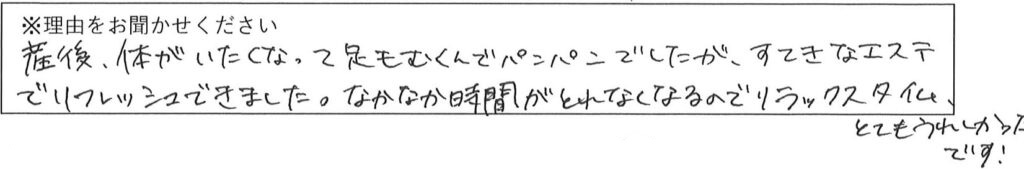 ※理由をお聞かせください
産後、体がいたくなって足もむくんでパンパンでしたが、すてきなエステ
でリフレッシュできました。なかなか時間がとれなくなるのでリラックスタイム、
とてもうれしかった
です!